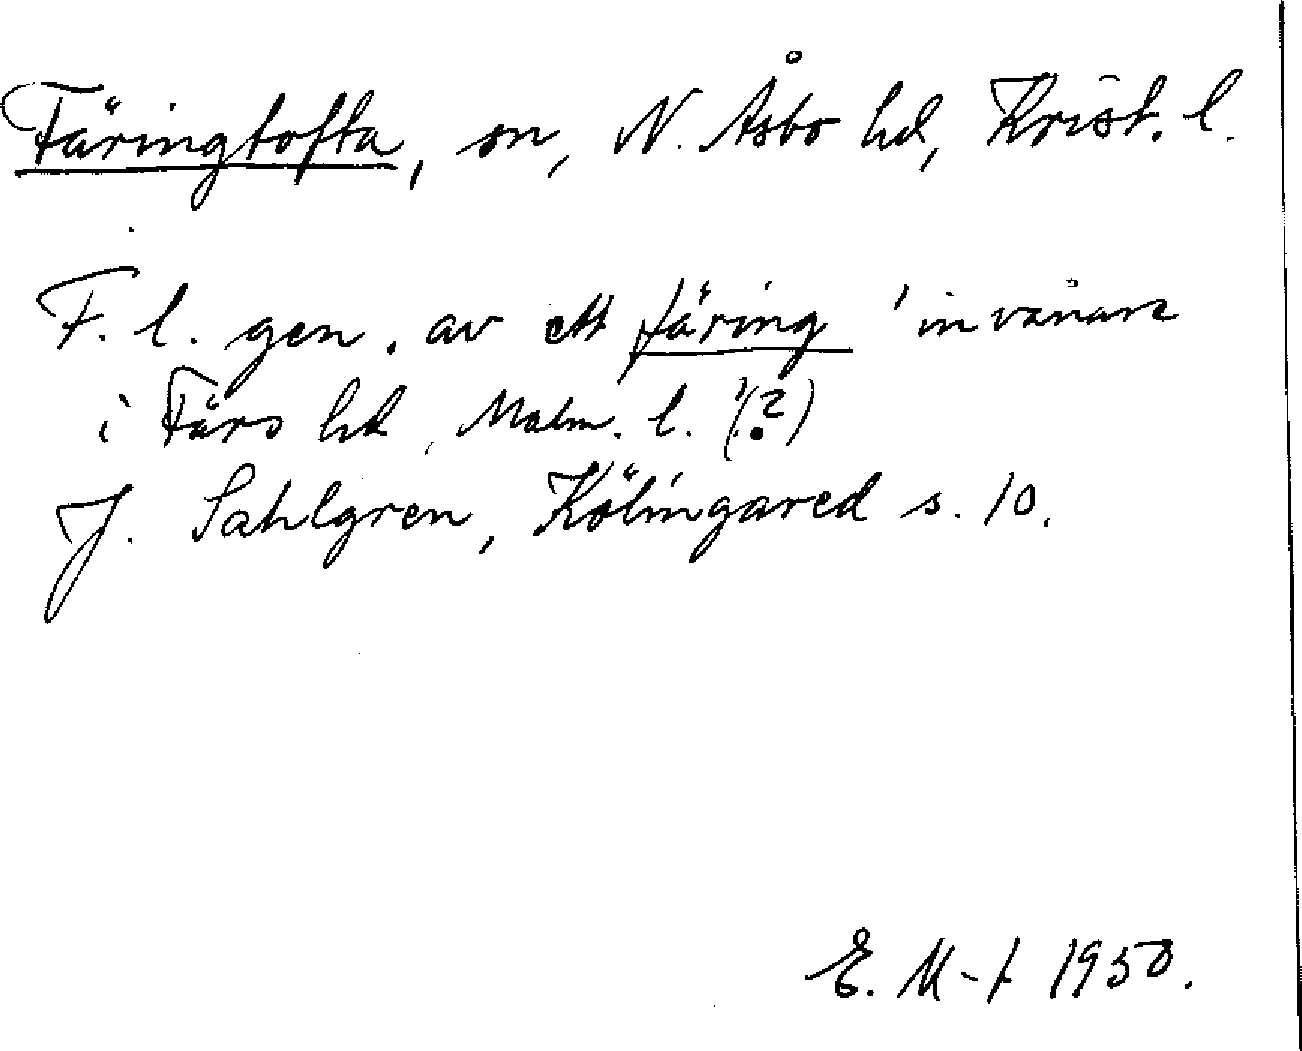 Färingtofta, sn, N. Åsbo hd, Krist. l.
F. l. gen. av ett färing 'invånare
i Färs hd, Malm. l.'(?)
J. Sahlgren, Kölingared s. 10.
E. M-t 1950.